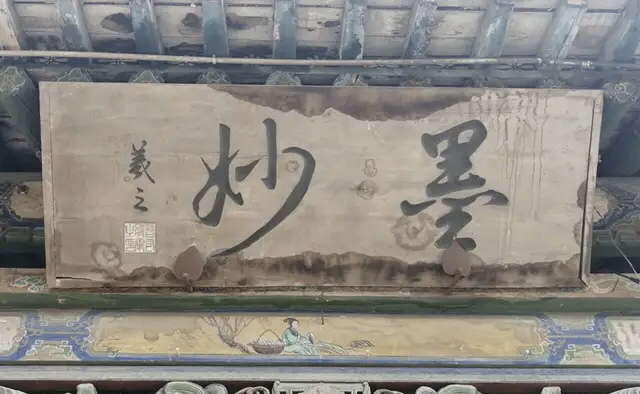 墨妙
羲之